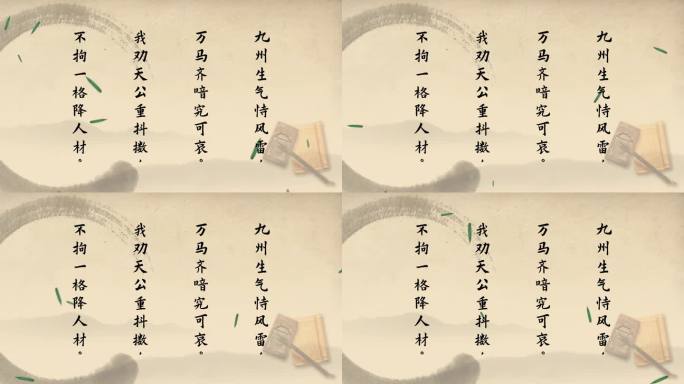 九州生气恃风雷，
万马齐喑究可哀。
我劝天公重抖擞，
不拘一格降人材。
九州生气恃风雷，
万马齐喑究可哀。
我劝天公重抖擞，
不拘一格降人材。
九州生气恃风雷，
万马齐喑究可哀。
我劝天公重抖擞，
不拘一格降人材。
九州生气恃风雷，
万马齐喑究可哀。
我劝天公重抖擞，
不拘一格降人材。